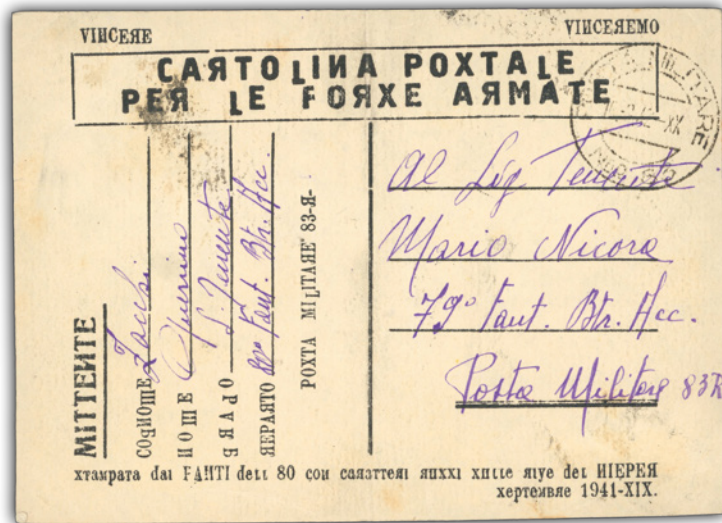 VIИCEЯE VIИCEЯEMO
CAЯTOLIИA POXTALE
PEЯ LE FOЯXE AЯMATE
MILITARE
XX
MITTEИTE
COGИOME Zacchi
ИOME
GЯADO S. Tenente
ЯEPAЯTO 80° Fant. Btr. Acc.
POXTA MILITAЯE 83-Я-
Al Sig Tenente
Mario Nicora
79° Fant. Btr. Acc.
Posta Militare 83R
xтampata daı FAИTI deLL 80 coи caяatteяi яuxxi xuLLe яive deL ИIEPEЯ
xeptemвяe 1941-XIX.